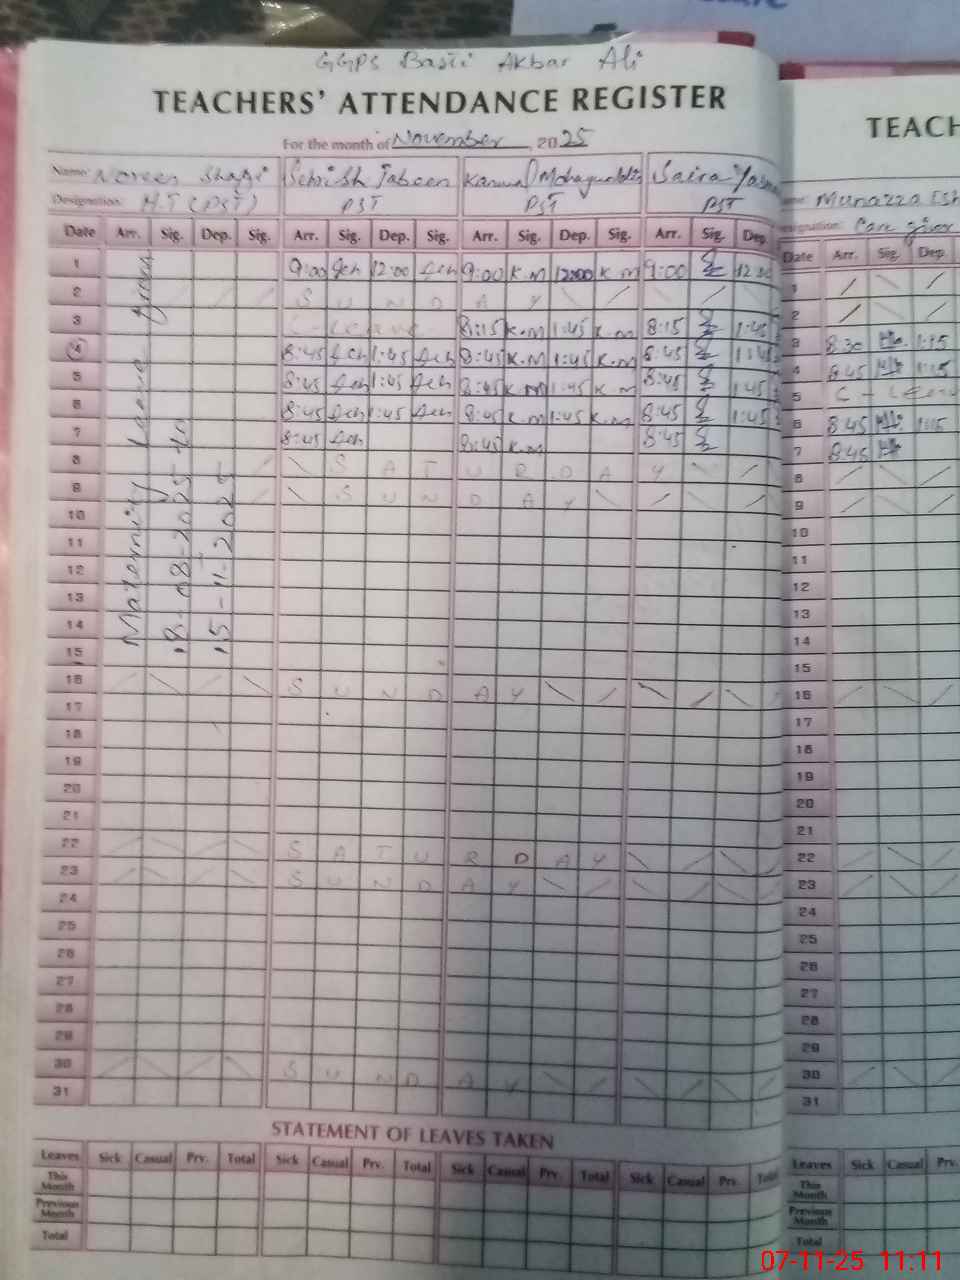 GGPS Basti Akbar Ali
TEACHERS' ATTENDANCE REGISTER
For the month of November, 2025
Name: Noreen Shafi Sehrish Jabeen Kanwal Saira
Designation: H.T (PST) PST PST PST
Date Arr. Sig. Dep. Sig. Arr. Sig. Dep. Sig. Arr. Sig. Dep. Sig. Arr. Sig. Dep.
Maternity Leave from
18-08-2025 to
15-11-2025
1 9:00 12:00 9:00 K.M 12:00 K.M 9:00
2 S U N D A Y
3 C-Leave 8:15 K.M 1:45 K.M 8:15 1:45
4 8:45 1:45 8:45 K.M 1:45 K.M 8:45 1:45
5 8:45 1:45 8:45 K.M 1:45 K.M 8:45 1:45
6 8:45 1:45 8:45 K.M 1:45 K.M 8:45 1:45
7 8:45 8:45 K.M 8:45
8 S A T U R D A Y
9 S U N D A Y
10
11
12
13
14
15
16 S U N D A Y
17
18
19
20
21
22 S A T U R D A Y
23 S U N D A Y
24
25
26
27
28
29
30 S U N D A Y
31
STATEMENT OF LEAVES TAKEN
Leaves Sick Casual Prv. Total Sick Casual Prv. Total Sick Casual Prv. Total Sick Casual Prv. Total
This Month
Previous Month
Total
TEACH
Munazza
Care giver
Date Arr. Sig. Dep.
1
2
3 8:30 1:15
4 8:45 1:15
5 C - Leave
6 8:45 1:15
7 8:45
8
9
10
11
12
13
14
15
16
17
18
19
20
21
22
23
24
25
26
27
28
29
30
31
Leaves Sick Casual Prv.
This Month
Previous Month
Total
07-11-25 11:11